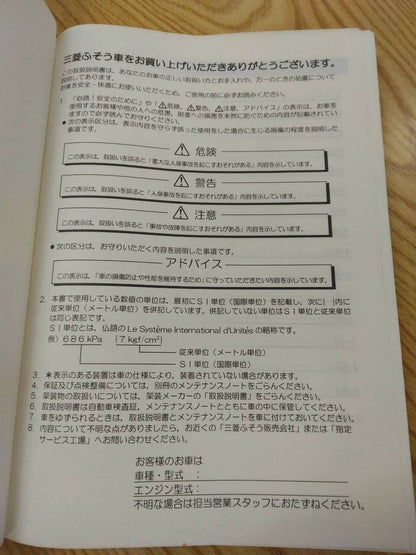 三菱ふそう車をお買い上げいただきありがとうございます。
この取扱説明書は、あなたのお車の正しい取扱い方とお手入れや、万一のときの処置について
説明してあります。
お車を安全・快適にお使いいただくため、ご使用の前に必ずお読みください。
1. 「必読！安全のために」や「⚠危険、⚠警告、⚠注意、アドバイス」の表示は、お車を
使用するお客様や他の人への危害、財産への損害を未然に防ぐための内容が記載されてい
ますので必ず読んでお守りください。
● 次の表示区分は、表示内容を守らず誤った使用をした場合に生じる損傷の程度を説明した
事項です。
⚠ 危険
この表示は、取扱いを誤ると「重大な人身事故を起こすおそれがある」内容を示しています。
⚠ 警告
この表示は、取扱いを誤ると「人身事故を起こすおそれがある」内容を示しています。
⚠ 注意
この表示は、取扱いを誤ると「事故や故障を起こすおそれがある」内容を示しています。
● 次の区分は、お守りいただく内容を説明した事項です。
アドバイス
この表示は、「車の損傷防止や性能を維持するため」に守っていただきたい内容を示しています。
2. 本書で使用している数値の単位は、最初にＳＩ単位（国際単位）を記載し、次に[ ]内に
従来単位（メートル単位）を併記しています。併記していない単位はＳＩ単位と従来単位
は同じ表記です。
ＳＩ単位とは、仏語の Le Système International d'Unités の略称です。
例） 686 kPa [7 kgf/cm²]
従来単位（メートル単位）
ＳＩ単位（国際単位）
3. ＊表示のある装置は車の仕様により、装着されていない場合があります。
4. 保証及び点検整備については、別冊のメンテナンスノートをごらんください。
5. 架装物の取扱いについては、架装メーカーの「取扱説明書」をごらんください。
6. 取扱説明書は自動車検査証、メンテナンスノートとともに車の中に保管してください。
7. 車をゆずられるときは、取扱説明書とメンテナンスノートを車に付けておいてください。
8. 内容について不明な点がありましたら、お近くの「三菱ふそう販売会社」または「指定
サービス工場」へお問い合わせください。
お客様のお車は
車種・型式：
エンジン型式：
不明な場合は担当営業スタッフにおたずねください。